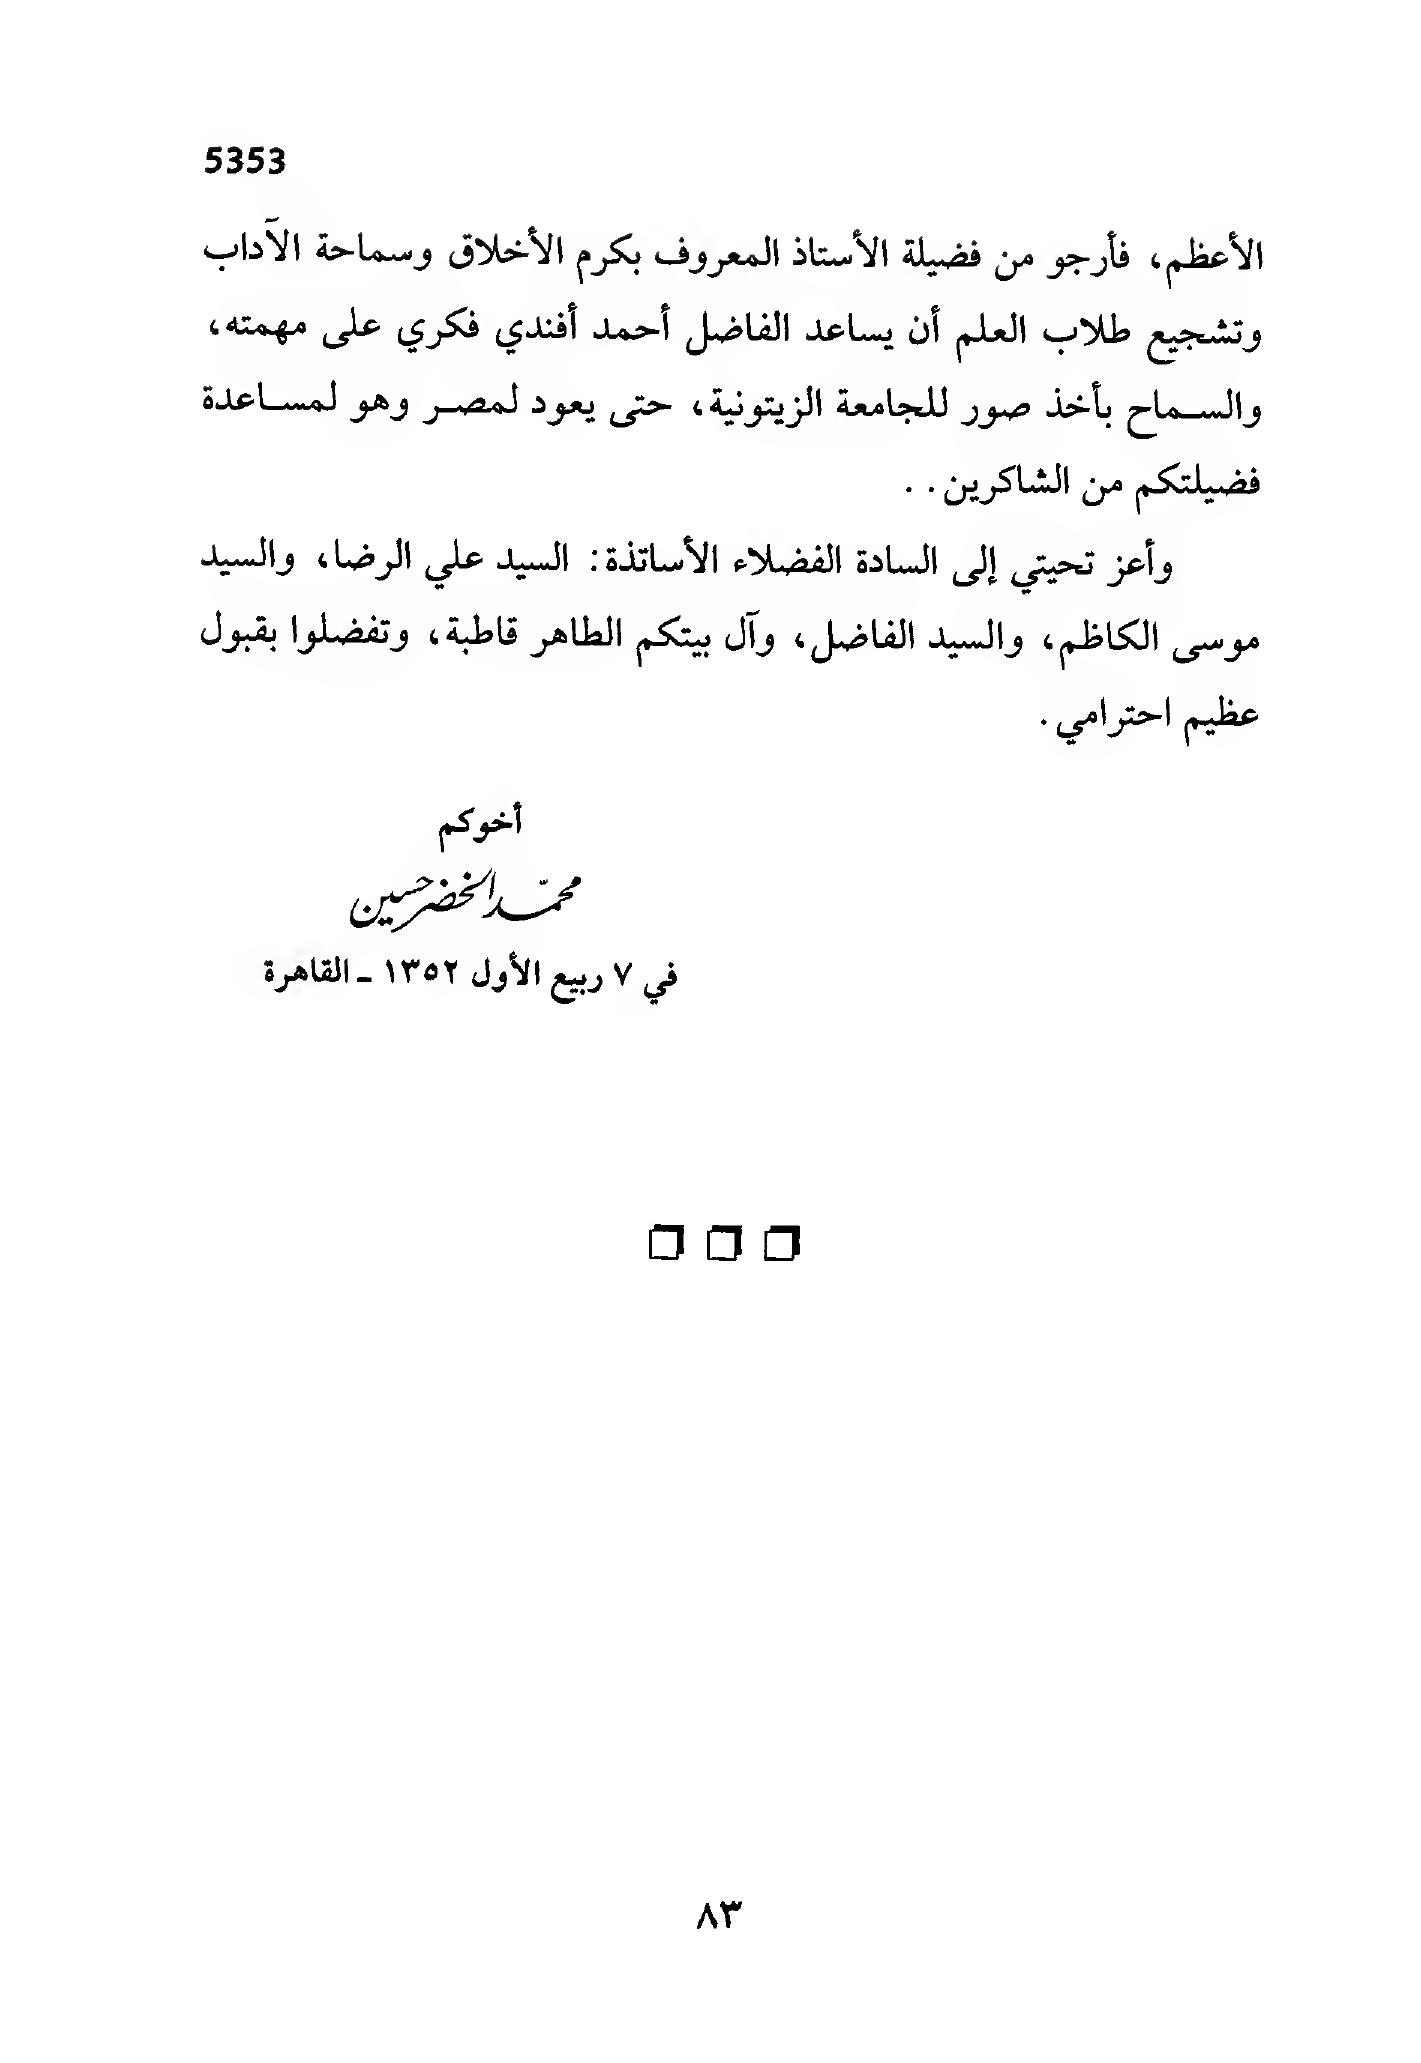 5353
الأعظم، فأرجو من فضيلة الأستاذ المعروف بكرم الأخلاق وسماحة الآداب
وتشجيع طلاب العلم أن يساعد الفاضل أحمد أفندي فكري على مهمته،
والسماح بأخذ صور للجامعة الزيتونية، حتى يعود لمصر وهو لمساعدة
فضيلتكم من الشاكرين..
وأعز تحيتي إلى السادة الفضلاء الأساتذة: السيد علي الرضا، والسيد
موسى الكاظم، والسيد الفاضل، وآل بيتكم الطاهر قاطبة، وتفضلوا بقبول
عظيم احترامي.
أخوكم
محمّد الخضر حسين
في ٧ ربيع الأول ١٣٥٢ - القاهرة
٨٣